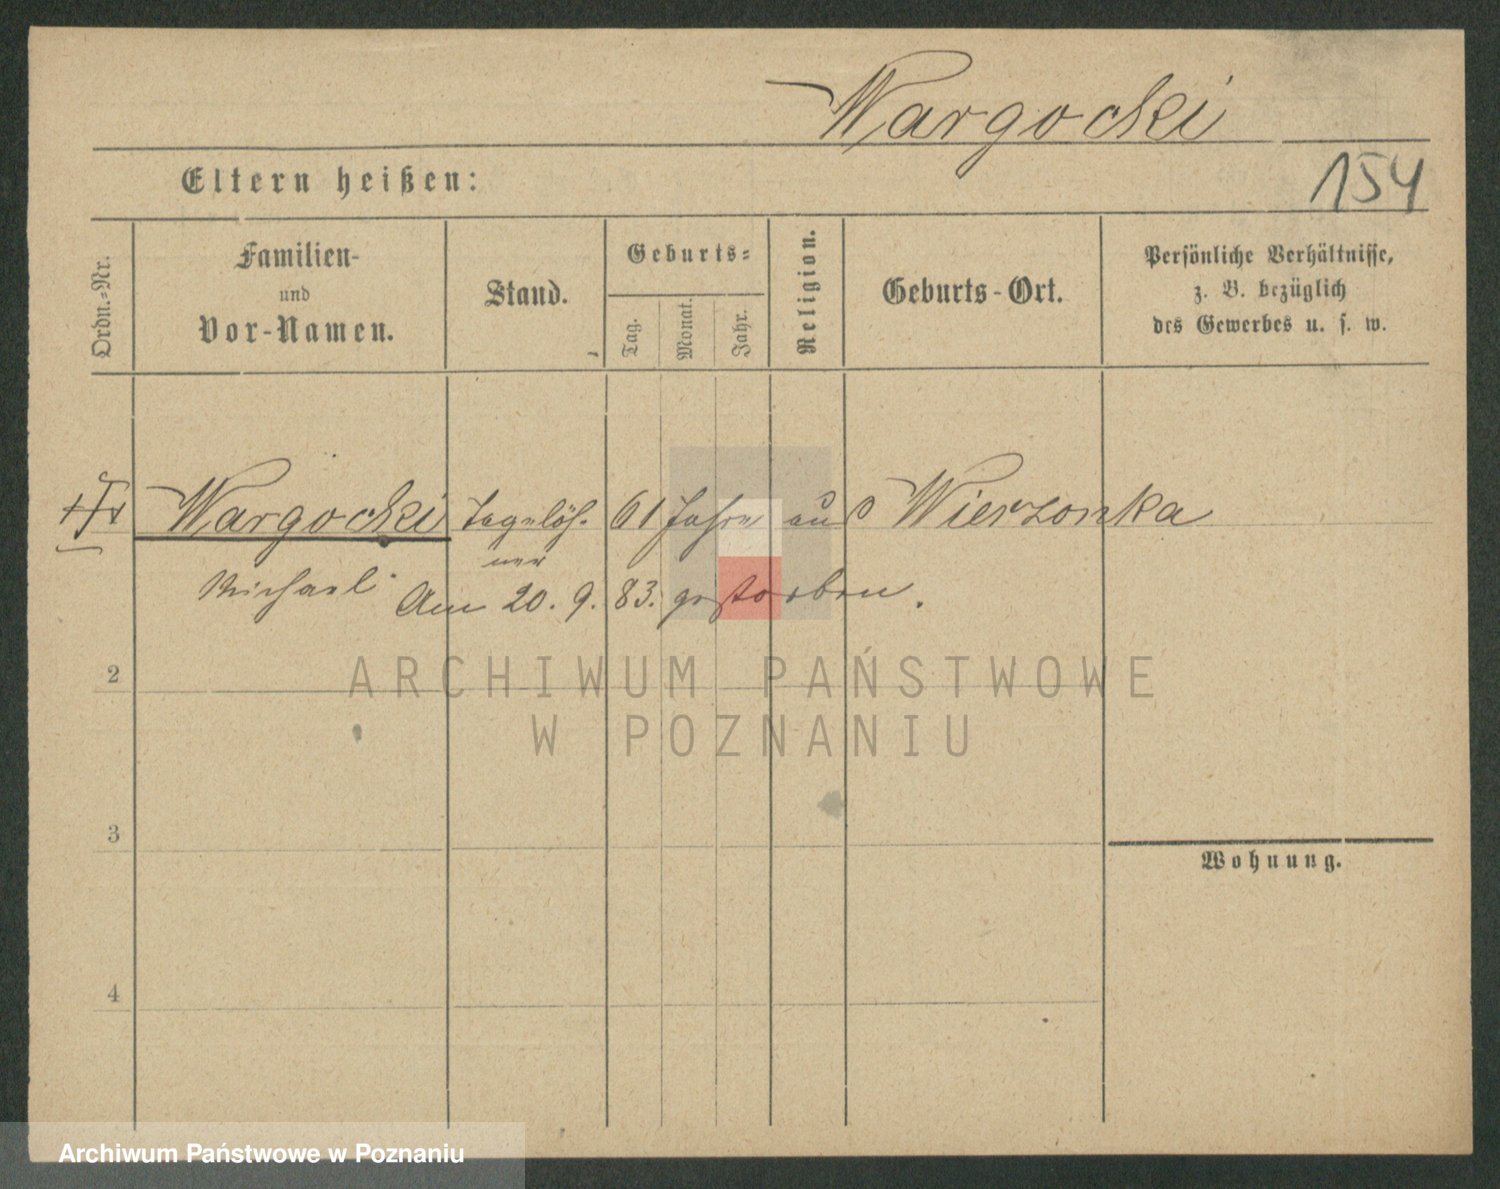 Wargocki
Eltern heißen:
154
Ordn.-Nr.
Familien-
und
Vor-Namen.
Stand.
Geburts-
Tag.
Monat.
Jahr.
Religion.
Geburts-Ort.
Persönliche Verhältnisse,
z. B. bezüglich
des Gewerbes u. s. w.
Wargocki Tagelöh- 61 Jahre aus Wierzonka
ner
Michael Am 20. 9. 83. gestorben.
2
ARCHIWUM PAŃSTWOWE
W POZNANIU
3
Wohnung.
4
Archiwum Państwowe w Poznaniu